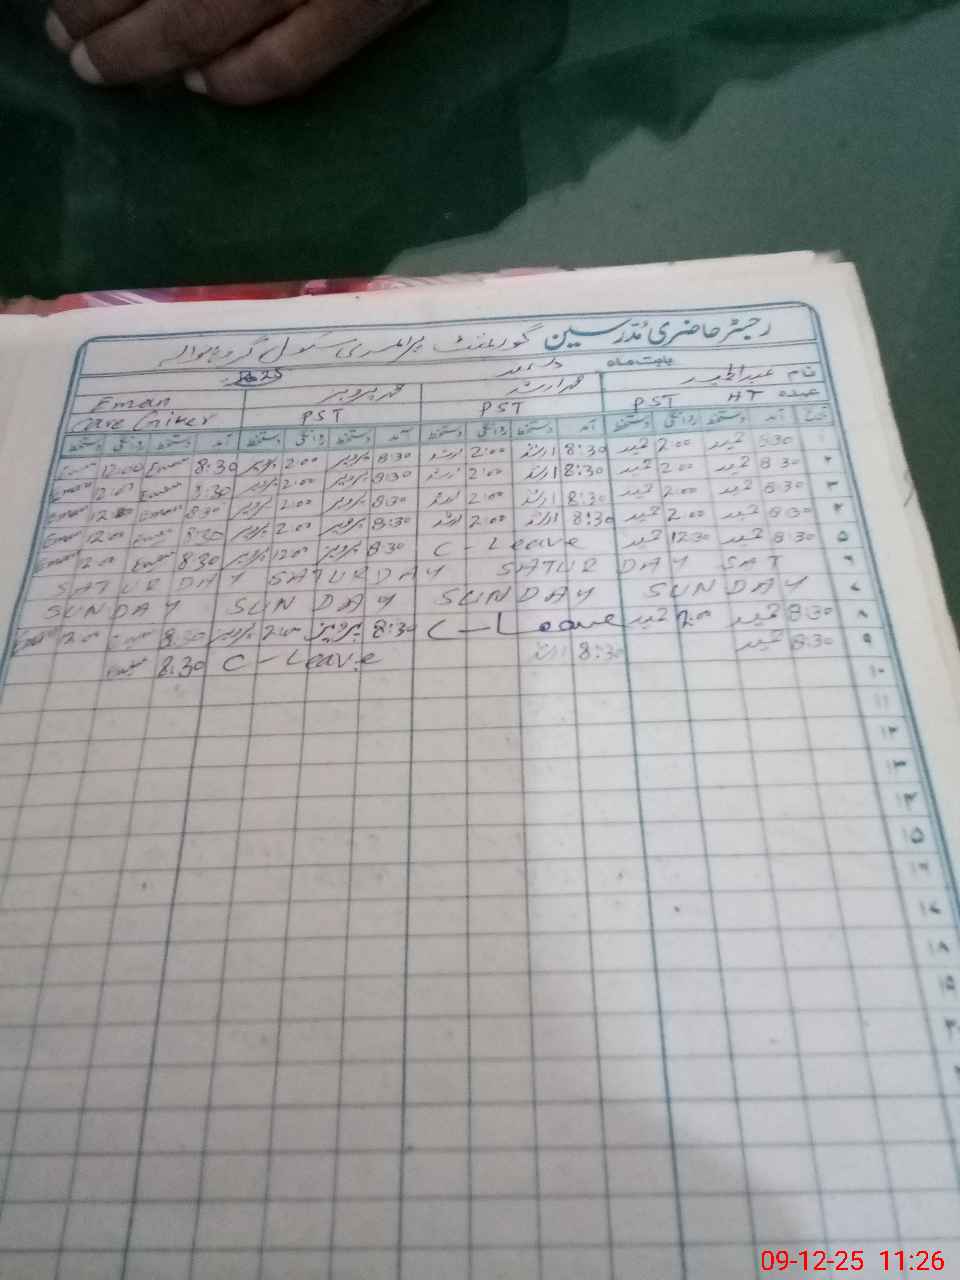 رجسٹر حاضری مدرسین گورنمنٹ پرائمری سکول
نام عبدالحمید بابت ماہ دسمبر 25
محمد ارشد محمد پرویز Eman
عہدہ HT PST PST PST Care Giver
تاریخ آمد دستخط روانگی دستخط آمد دستخط روانگی دستخط آمد دستخط روانگی دستخط آمد دستخط روانگی دستخط
۱ 8:30 حمید 2:00 حمید 8:30 ارشد 2:00 ارشد 8:30 پرویز 2:00 پرویز 8:30 Eman 12:00 Eman
۲ 8:30 حمید 2:00 حمید 8:30 ارشد 2:00 ارشد 8:30 پرویز 2:00 پرویز 8:30 Eman 12:00 Eman
۳ 8:30 حمید 2:00 حمید 8:30 ارشد 2:00 ارشد 8:30 پرویز 2:00 پرویز 8:30 Eman 12:00 Eman
۴ 8:30 حمید 2:00 حمید 8:30 ارشد 2:00 ارشد 8:30 پرویز 2:00 پرویز 8:30 Eman 12:00 Eman
۵ 8:30 حمید 12:30 حمید C - Leave 8:30 پرویز 12:00 پرویز 8:30 Eman 12:00 Eman
۶ SATUR DAY SATURDAY SATUR DAY SAT
۷ SUNDAY SUN DAY SUNDAY SUN DAY
۸ 8:30 حمید 2:00 حمید C - Leave 8:30 پرویز 2:00 پرویز 8:30 Eman 12:00 Eman
۹ 8:30 حمید 8:30 ارشد C - Leave 8:30 Eman
۱۰
۱۱
۱۲
۱۳
۱۴
۱۵
۱۶
۱۷
۱۸
۱۹
۲۰
09-12-25 11:26